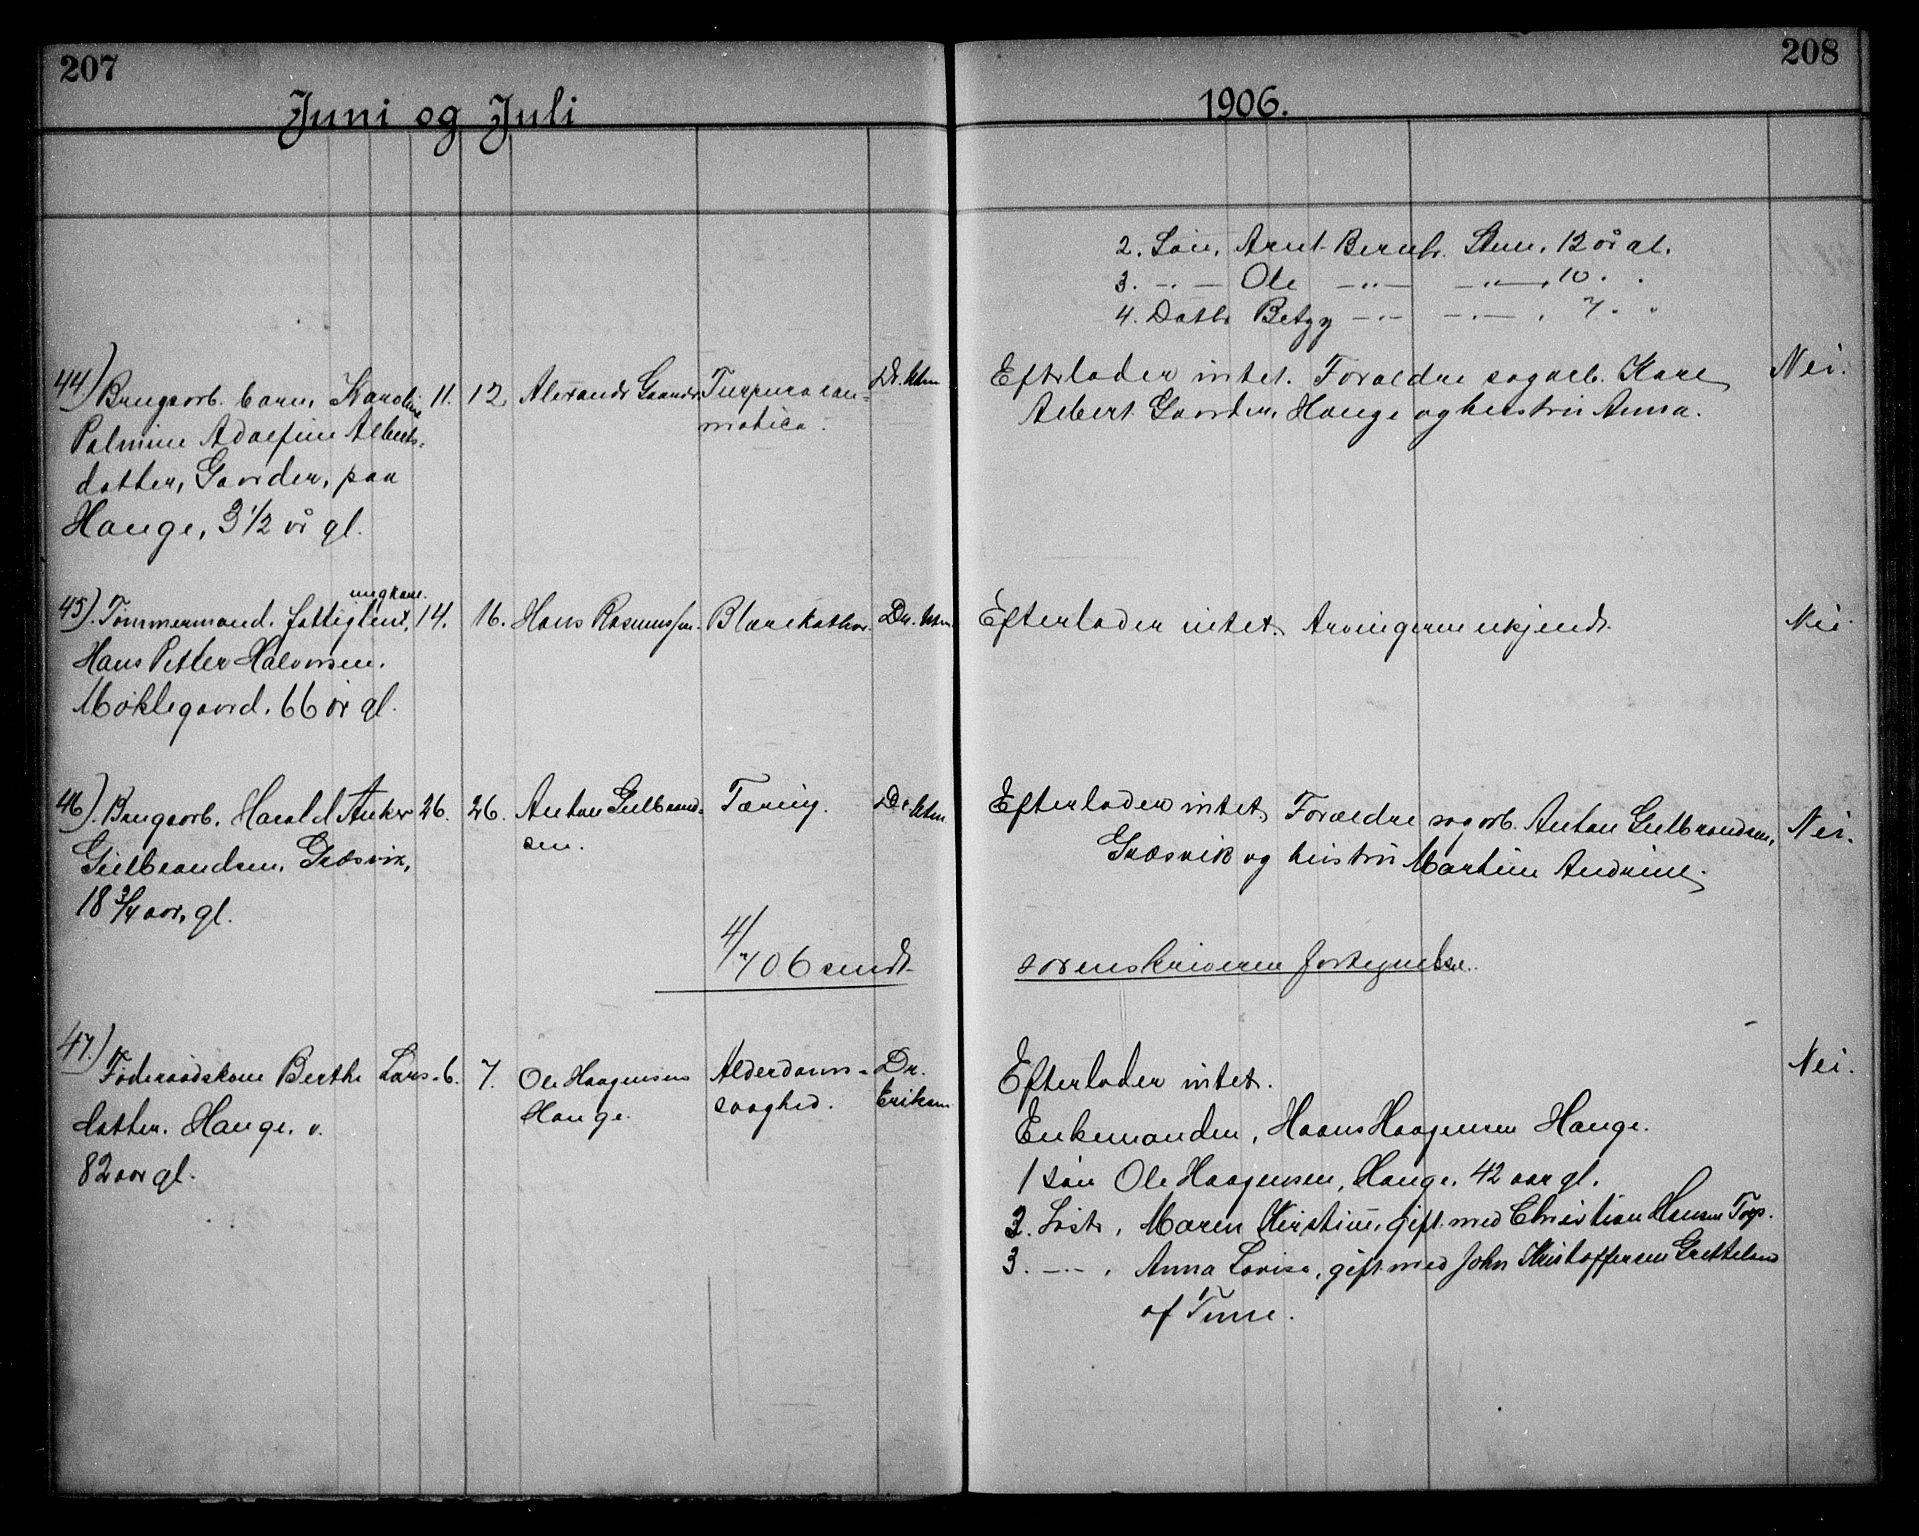 207
208
Juni og Juli
1906.
2. Søn, Arnt Bernh. 12 år gl.
3. -"- Ole -"- -"-, 10 " "
4. Datter Betzy -"- -"-, 7 " "
44) Brugsarb. barn, Karoline 11. 12. Purpura Dr. Efterlader intet. Forældre sagarb. Karl Nei.
Palmine Adolfine Alberts- Albert Gaarder, Hauge og hustru Anna.
datter, Gaarder, paa
Hauge, 3 1/2 år gl.
ungkarl.
45). Tømmermand. fattiglem, 14. 16. Hans Rasmussen. Blærekathar. Dr. Efterlader intet. Arvingerne ukjendt. Nei.
Hans Petter Halvorsen.
Moklegaard. 66 år gl.
46). Brugsarb. Harald Anker 26. 26. Anton Gulbrand- Tæring. Dr. Efterlader intet. Forældre sagarb. Anton Gulbrandsen, Nei.
Gulbrandsen, Græsvik, sen. Græsvik og hustru Martine Andrine.
18 3/4 aar, gl.
4/7 06 sendt sorenskriveren fortegnelse.
47.) Føderaadskone Berthe Lars- 6. 7. Ole Haagensen Alderdoms- Dr. Efterlader intet. Nei.
datter. Hauge. Hauge. svaghed. Eriksen Enkemanden, Haans Haagensen Hauge.
82 aar gl. 1 søn Ole Haagensen, Hauge. 42 aar gl.
2. Maren Kirstine, gift med Christian Hansen Torp.
3. -"-, Anna Lovise, gift med John Kristoffersen Gretteland
af Tune.